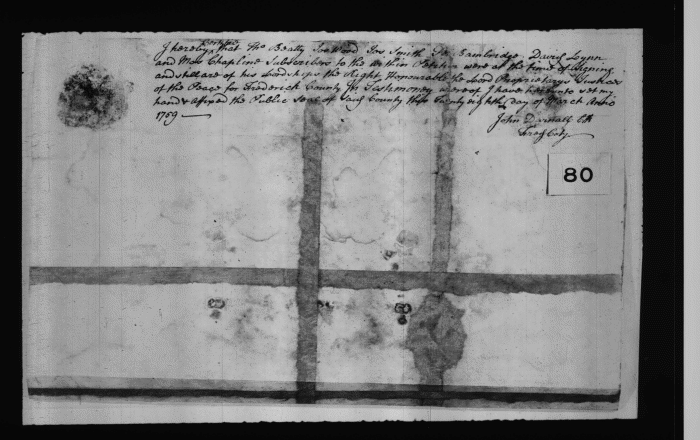 certifie
I hereby that Tho Beatty Jos Wood Jos Smith Bainbridge David Lynn
and Mos Chapline Subscribers to the within Petition were at the time of signing
and still are of his Lordships the Right Honourable the Lord Proprietarys Justices
of the Peace for Frederick County In Testimoney whereof I have hereunto set my
hand & affixed the Publick Seal of Said County this Twenty eighth day of March Anno
1759
John Darnall Clk
Fred Cty
80